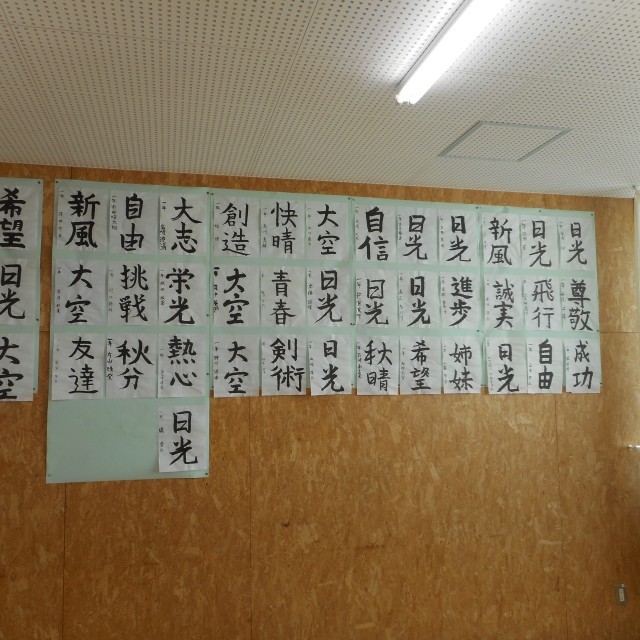 希望
新風
自由
大志
創造
快晴
大空
自信
日光
日光
新風
日光
日光
日光
大空
挑戦
栄光
大空
青春
日光
日光
日光
進歩
誠実
飛行
尊敬
大空
友達
秋分
熱心
大空
剣術
日光
秋晴
希望
姉妹
日光
自由
成功
日光